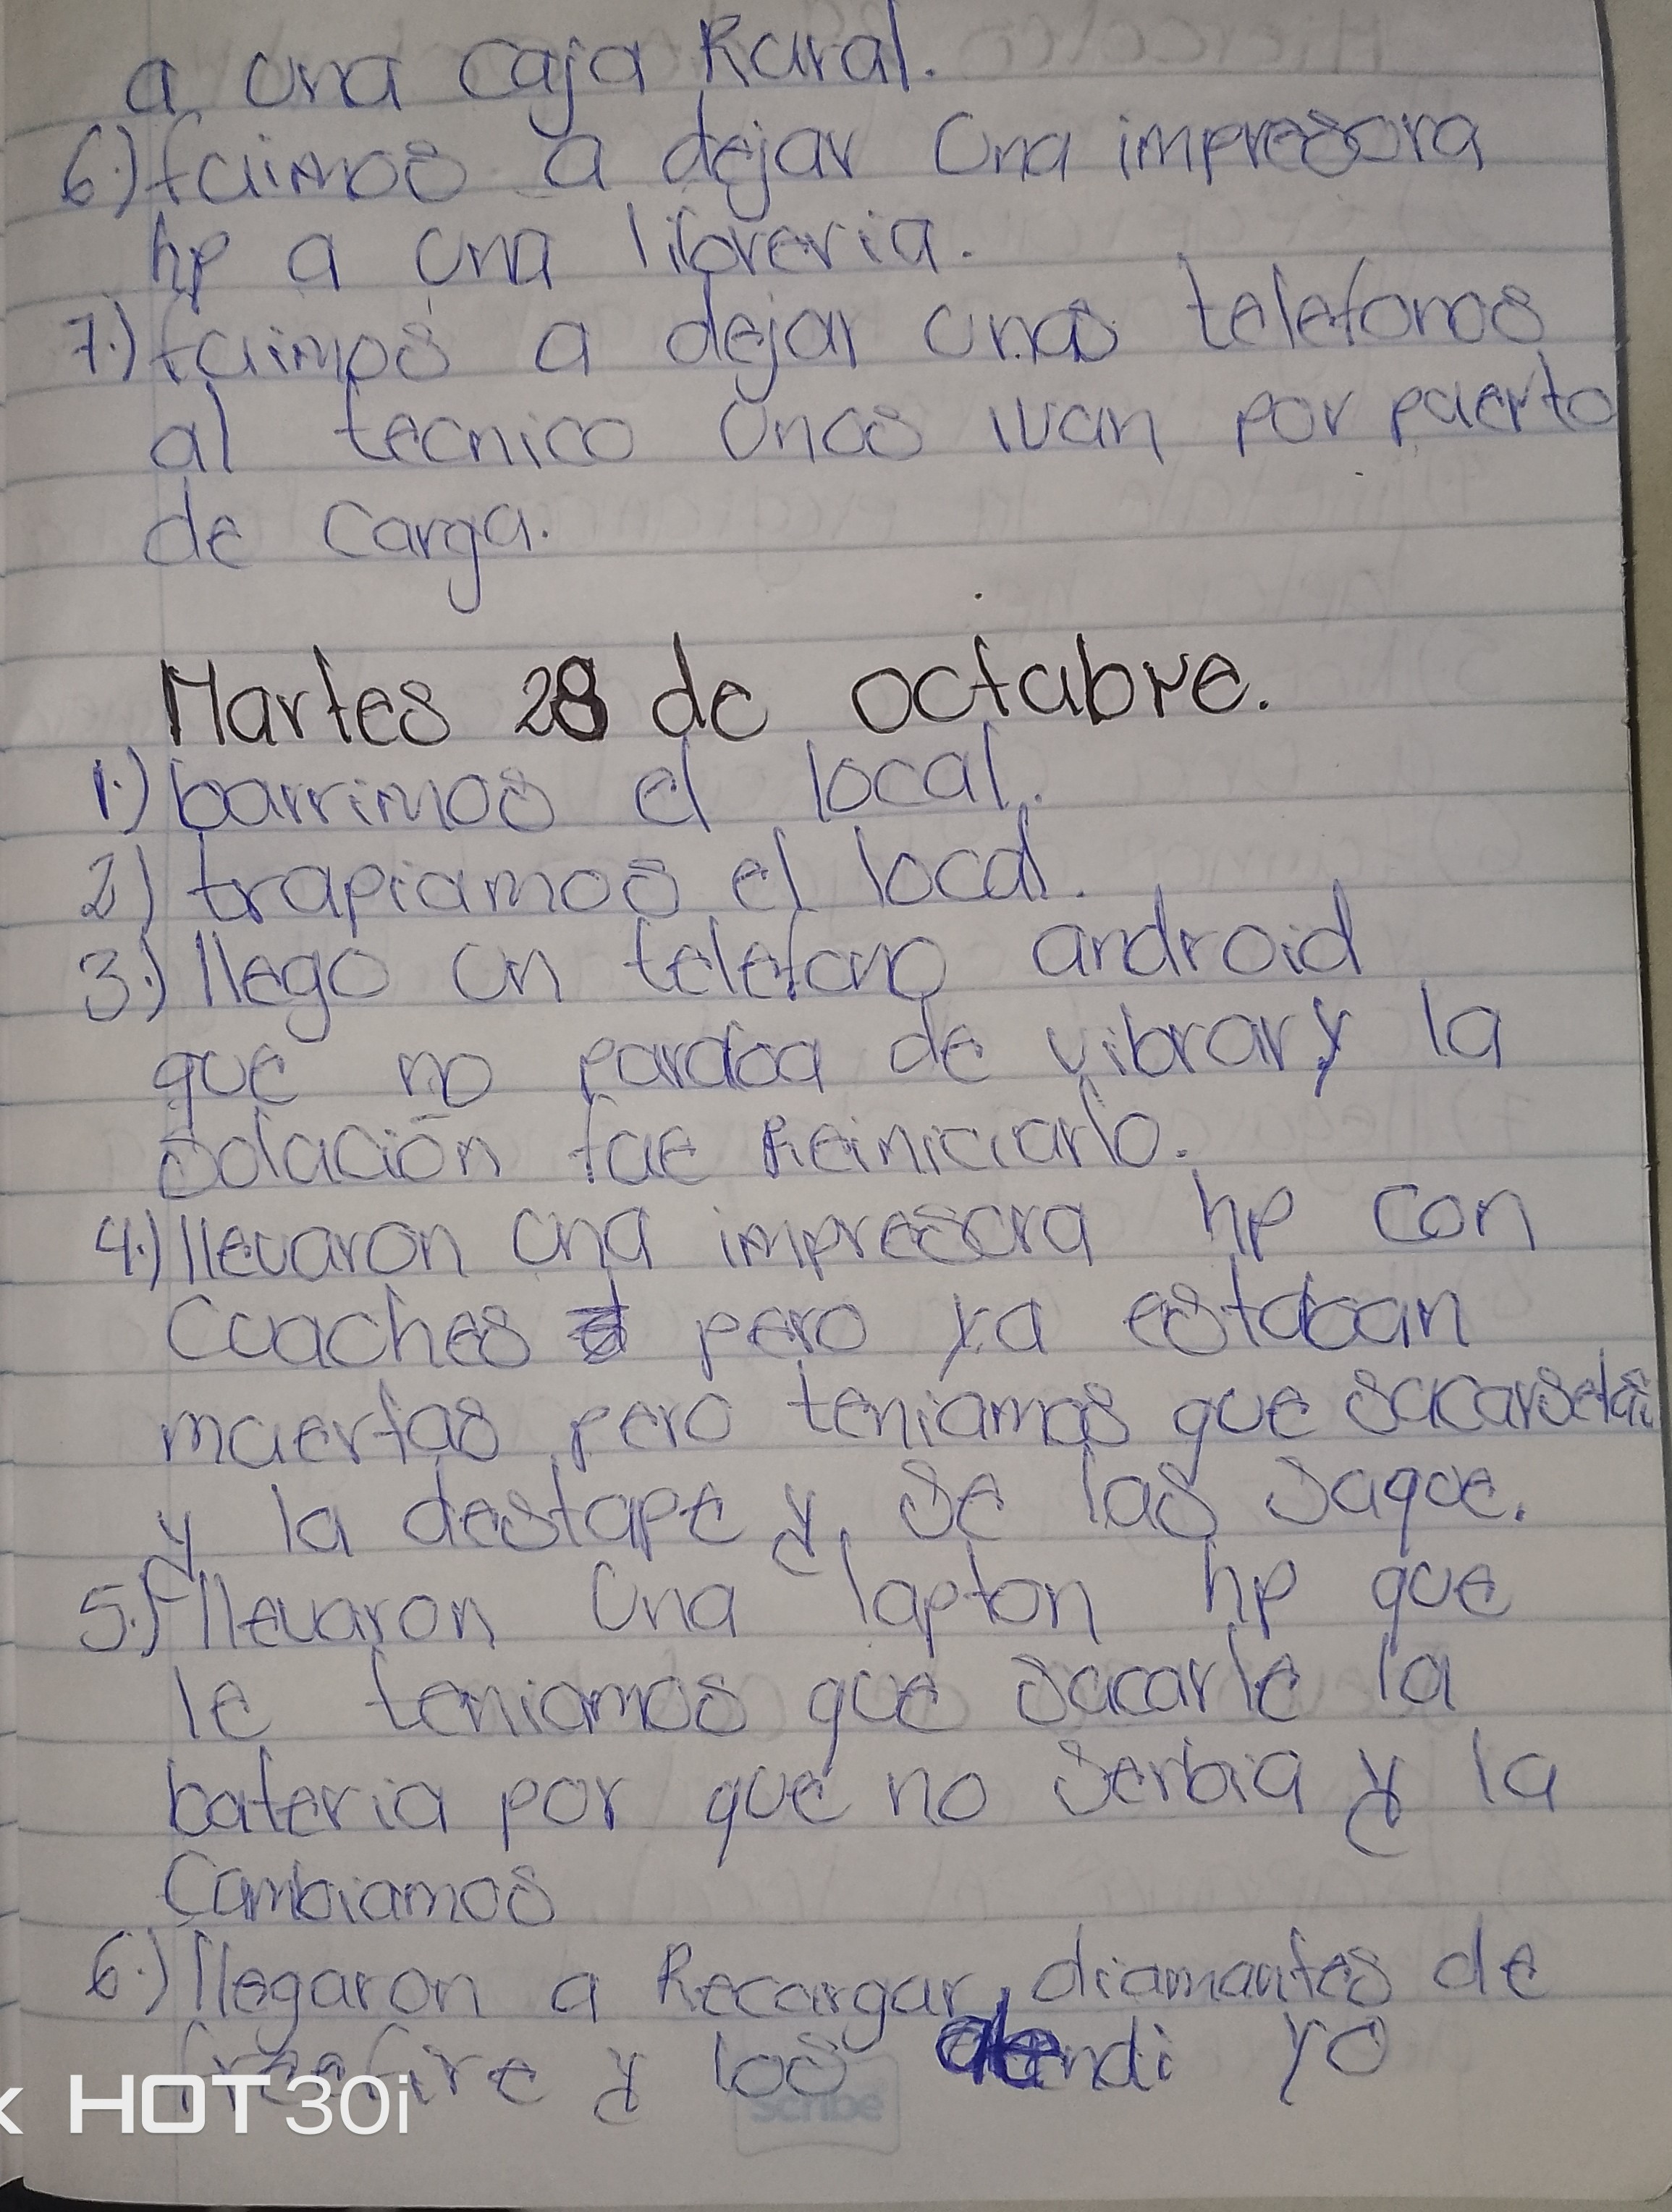 a una caja Rural.
6.) fuimos a dejar una impresora
hp a una libreria.
7.) fuimos a dejar unos telefonos
al tecnico unos ivan por puerto
de carga.
Martes 28 de octubre.
1.) barrimos el local.
2) trapiamos el local.
3.) llego un telefono android
que no paraba de vibrar y la
solución fue Reiniciarlo.
4.) llevaron una impresora hp con
Cucaches pero ya estaban
muertas pero teniamos que sacarselas
y la destape y se las saque.
5.) llevaron una lapton hp que
le teniamos que sacarle la
bateria por que no serbia y la
Cambiamos
6.) llegaron a Recargar diamantes de
free fire y los atendi yo
HOT 30i
Scribe